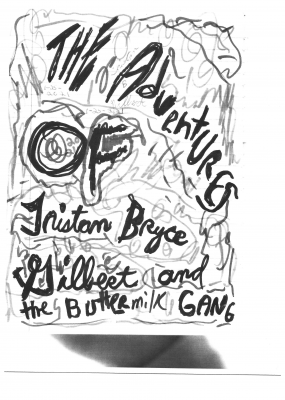 THE
AdventURES
OF
Tristan Bryce
Gilbert and
the Buttermilk GANG